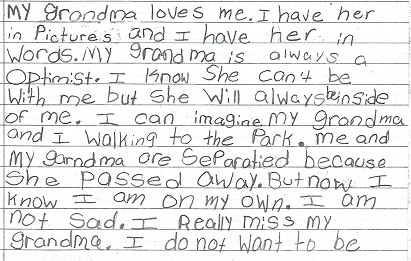 My grandma loves me. I have her
in Pictures and I have her in
words. My grandma is always a
Optimist. I know She can't be
With me but She Will always be inside
of me. I can imagine my grandma
and I walking to the Park. me and
My garndma are SeParatied because
She Passed away. But now I
know I am on my own. I am
not Sad. I Really miss my
grandma. I do not Want to be